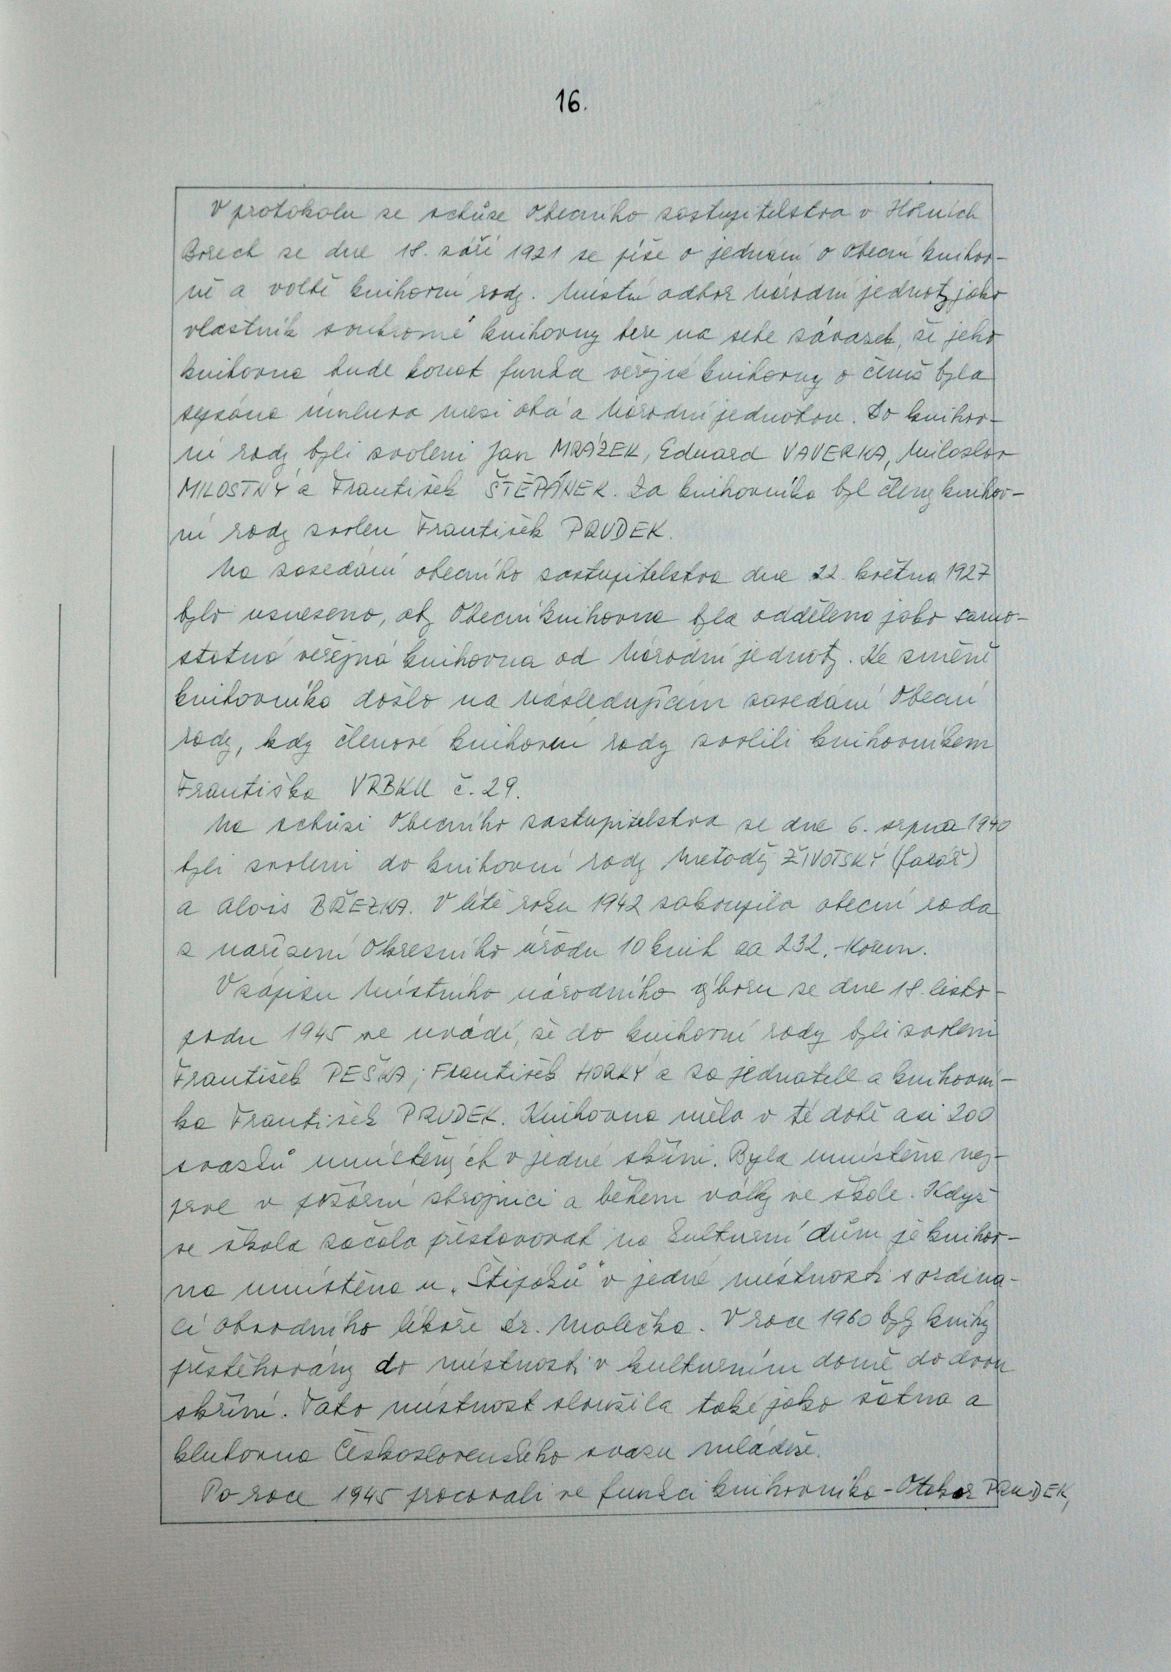 16.
V protokolu se schůze Obecního zastupitelstva v Horních
Borech se dne 18. září 1921 se píše o jednání o Obecní knihov-
ně a volbě knihovní rady. Místní odbor Národní jednoty jako
vlastník soukromé knihovny bere na sebe závazek, že jeho
knihovna bude konat funkci veřejné knihovny o čemž byla
sepsána smlouva mezi obcí a Národní jednotou. Do knihov-
ní rady byli zvoleni Jan MRÁZEK, Eduard VAVERKA, Miloslav
MILOSTNÝ a František ŠTĚPÁNEK. Za knihovníka byl členy knihov-
ní rady zvolen František PRUDEK.
Na zasedání obecního zastupitelstva dne 22. května 1927
bylo usneseno, aby Obecní knihovna byla oddělena jako samo-
statná veřejná knihovna od Národní jednoty. Ke změně
knihovníka došlo na následujícím zasedání Obecní
rady, kdy členové knihovní rady zvolili knihovníkem
Františka VRBKU č. 29.
Na schůzi Obecního zastupitelstva se dne 6. srpna 1940
byli zvoleni do knihovní rady Metoděj ŽIVOTSKÝ (farář)
a Alois BŘEZKA. V létě roku 1942 zakoupila obecní rada
z nařízení Okresního úřadu 10 knih za 232,- Korun.
V zápisu Místního národního výboru se dne 18. listo-
padu 1945 se uvádí, že do knihovní rady byli zvoleni
František PEŠKA, František HORKÝ a za jednatele a knihovní-
ka František PRUDEK. Knihovna měla v té době asi 200
svazků umístěných v jedné skříni. Byla umístěna nej-
prve v požární zbrojnici a během války ve škole. Když
se škola začala přestavovat na kulturní dům je knihov-
na umístěna u „Štipáků" v jedné místnosti s ordina-
cí obvodního lékaře Dr. Malečka. V roce 1960 byly knihy
přestěhovány do místnosti v kulturním domě do dvou
skříní. Tato místnost sloužila také jako šatna a
klubovna Československého svazu mládeže.
Po roce 1945 pracovali ve funkci knihovníka - Otakar PRUDEK,